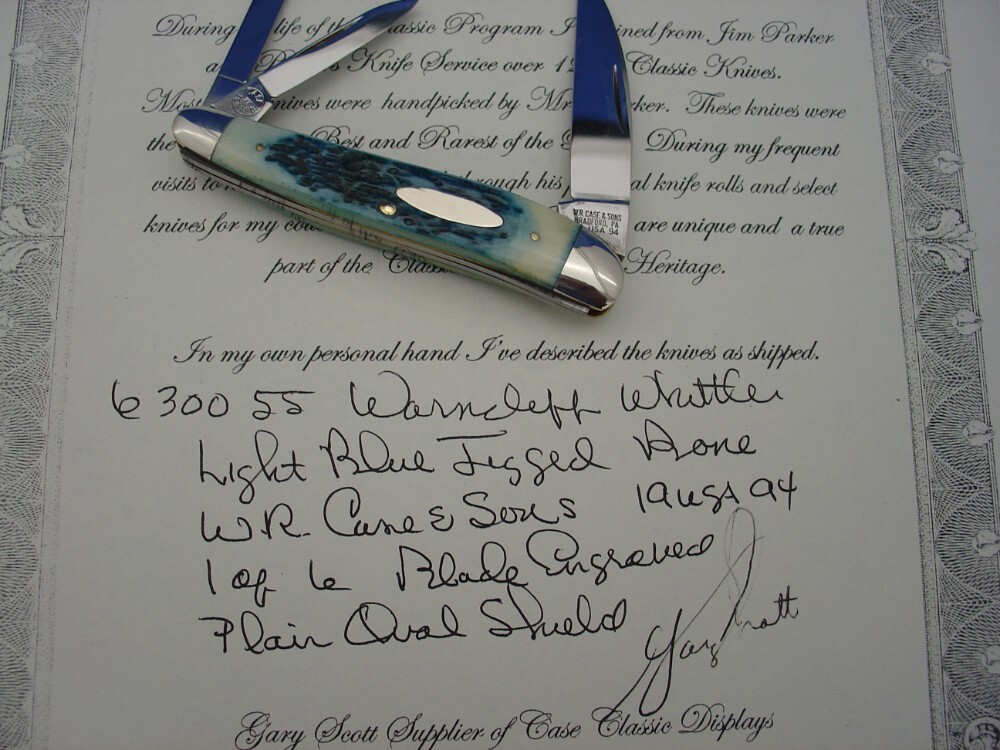 During life of assic Program I ined from Jim Parker
a Knife Service over 1 Classic Knives.
Most nives were handpicked by Mr ker. These knives were
the Best and Rarest of the During my frequent
visits to rough his al knife rolls and select
knives for my are unique and a true
part of the Class Heritage.
W.R. CASE & SONS
BRADFORD, PA
USA 94
In my own personal hand I've described the knives as shipped.
630055 Warncleff Whittler
Light Blue Jigged Bone
W.R. Case & Sons 19 USA 94
1 of 6 Blade Engraved
Plain Oval Shield
Gary Scott
Gary Scott Supplier of Case Classic Displays